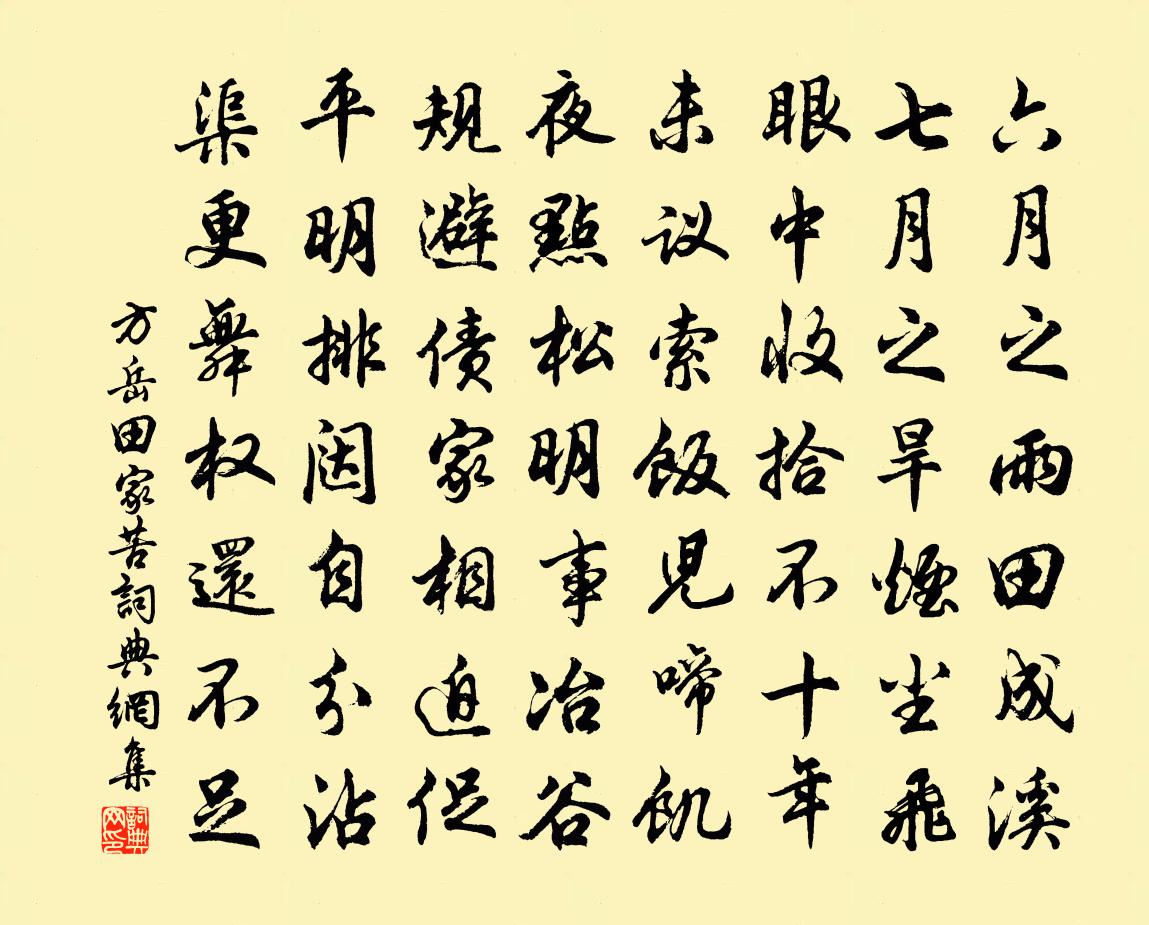 六月之雨田成溪
七月之旱煙尘飛
眼中收拾不十年
未议索飯兒啼飢
夜點松明事冶谷
規避债家相迫促
平明排闼自分沾
渠更舞权還不足
方岳田家苦詞典網集
詞典网印